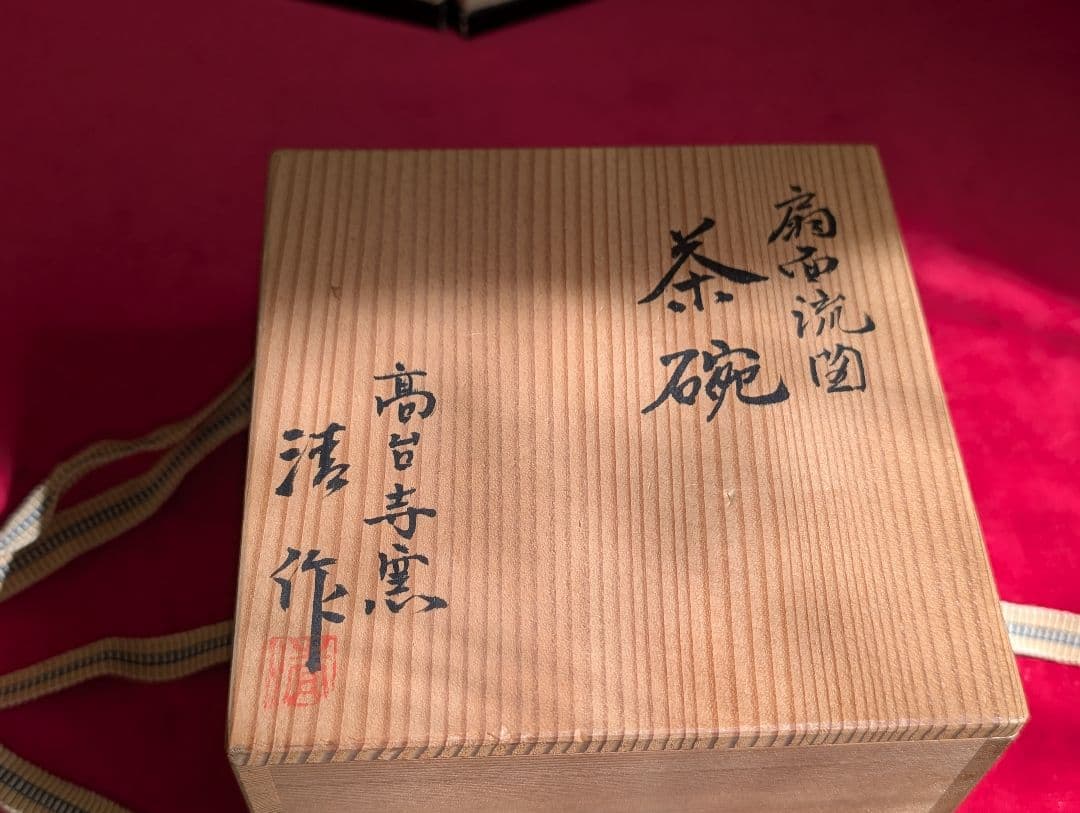 扇面流図
茶碗
高台寺窯
清作